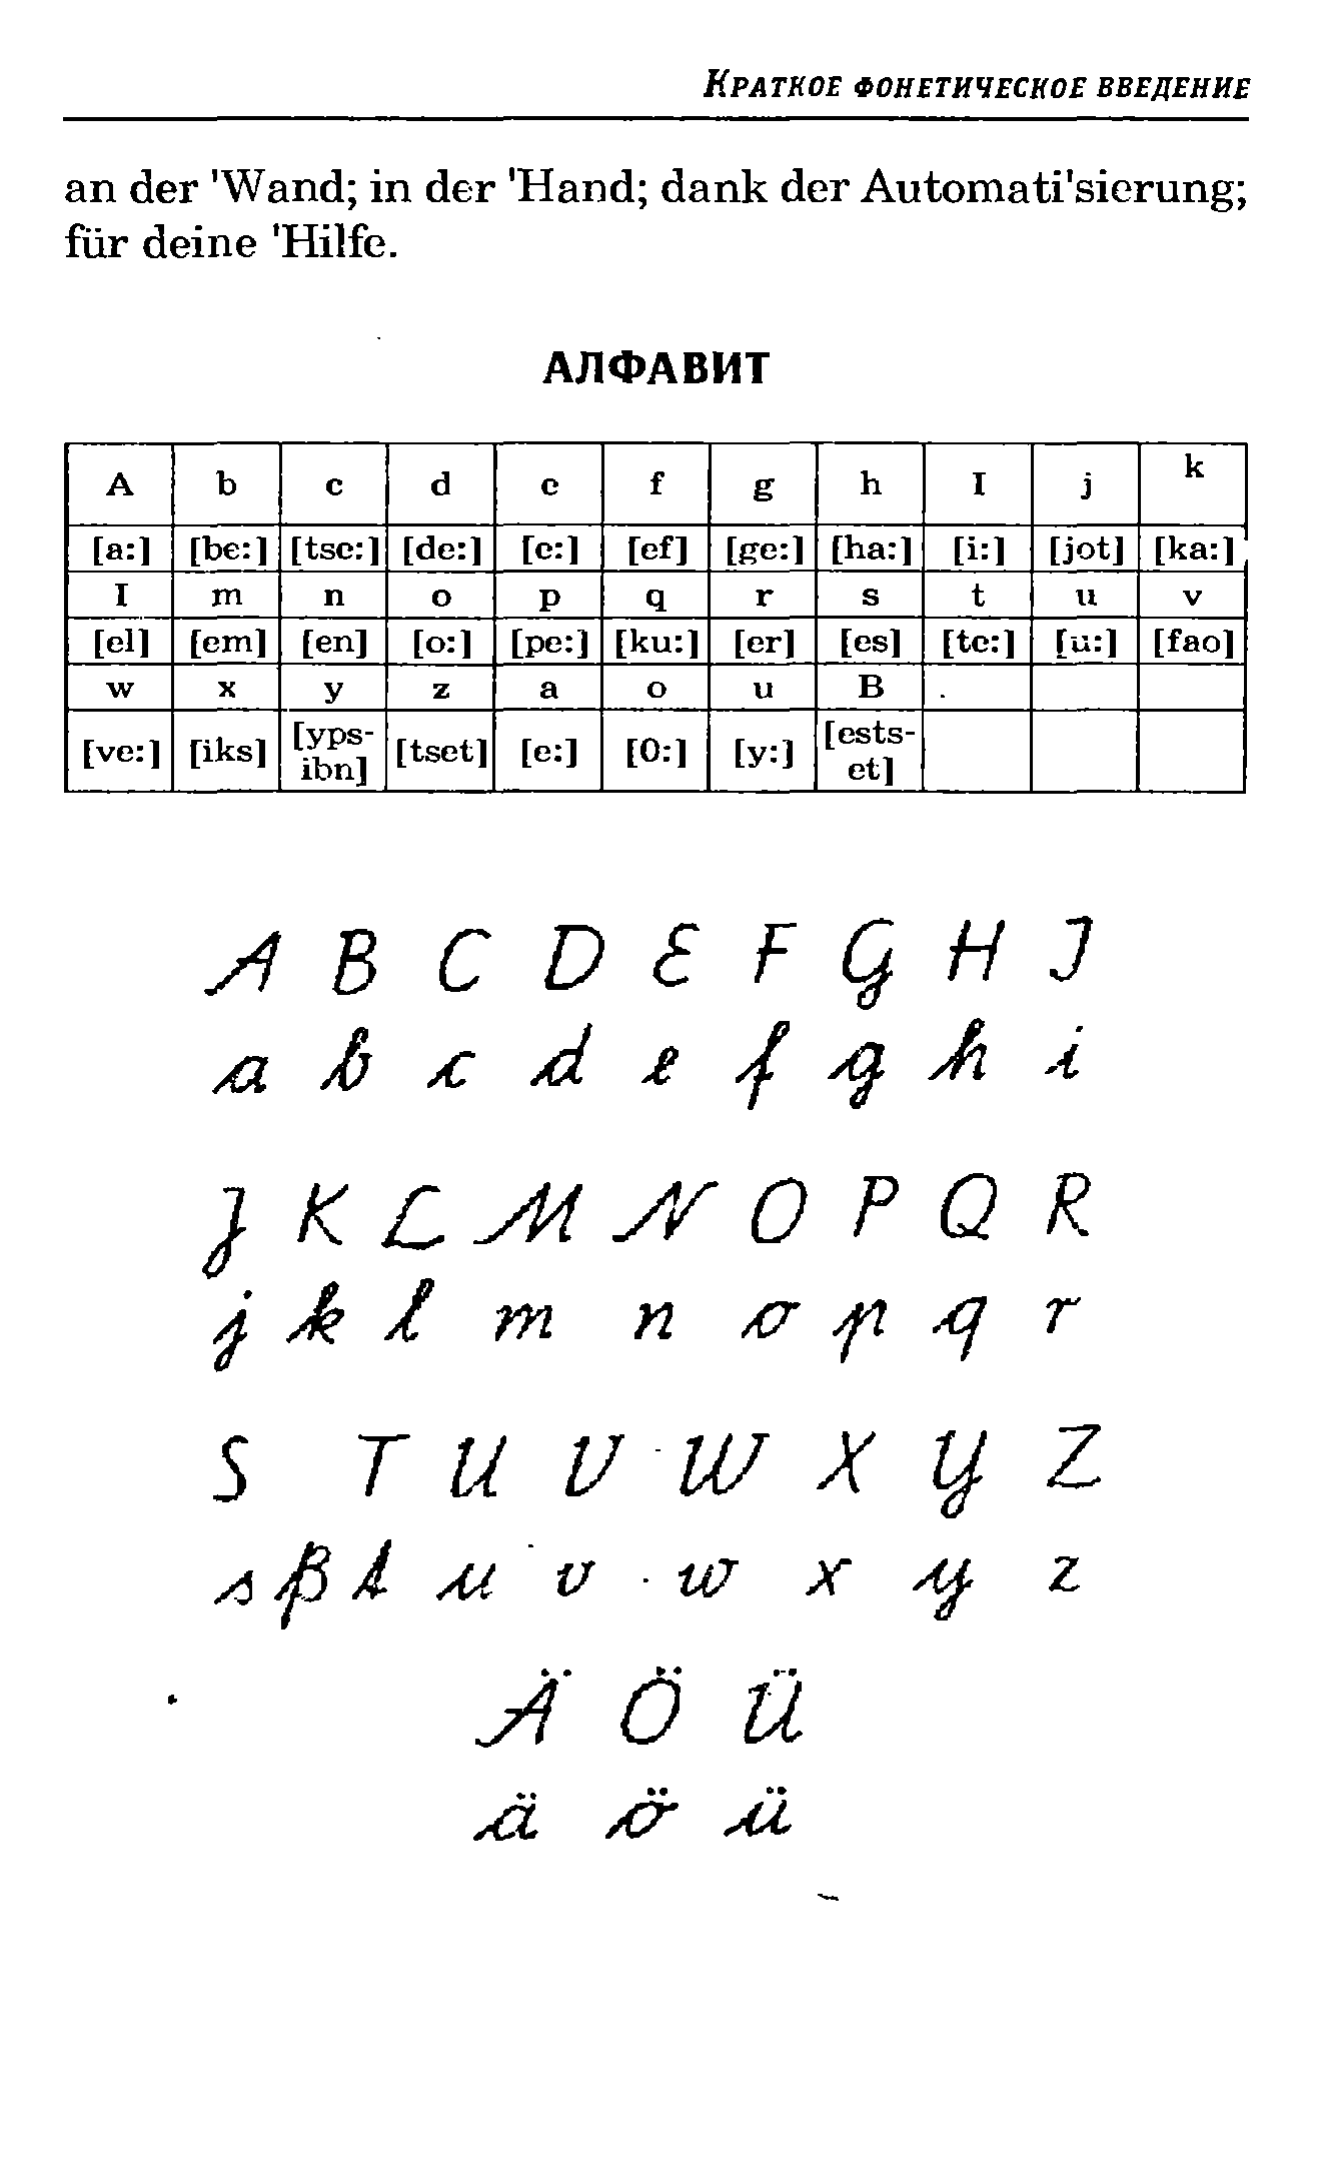 КРАТКОЕ ФОНЕТИЧЕСКОЕ ВВЕДЕНИЕ
an der 'Wand; in der 'Hand; dank der Automati'sierung;
für deine 'Hilfe.
АЛФАВИТ
A b c d e f g h I j k
[a:] [be:] [tse:] [de:] [e:] [ef] [ge:] [ha:] [i:] [jot] [ka:]
I m n o p q r s t u v
[el] [em] [en] [o:] [pe:] [ku:] [er] [es] [te:] [u:] [fao]
w x y z a o u B
[ve:] [iks] [yps-ibn] [tset] [e:] [0:] [y:] [ests-et]
A B C D E F G H I
a b c d e f g h i
J K L M N O P Q R
j k l m n o p q r
S T U V W X Y Z
s ß t u v w x y z
Ä Ö Ü
ä ö ü